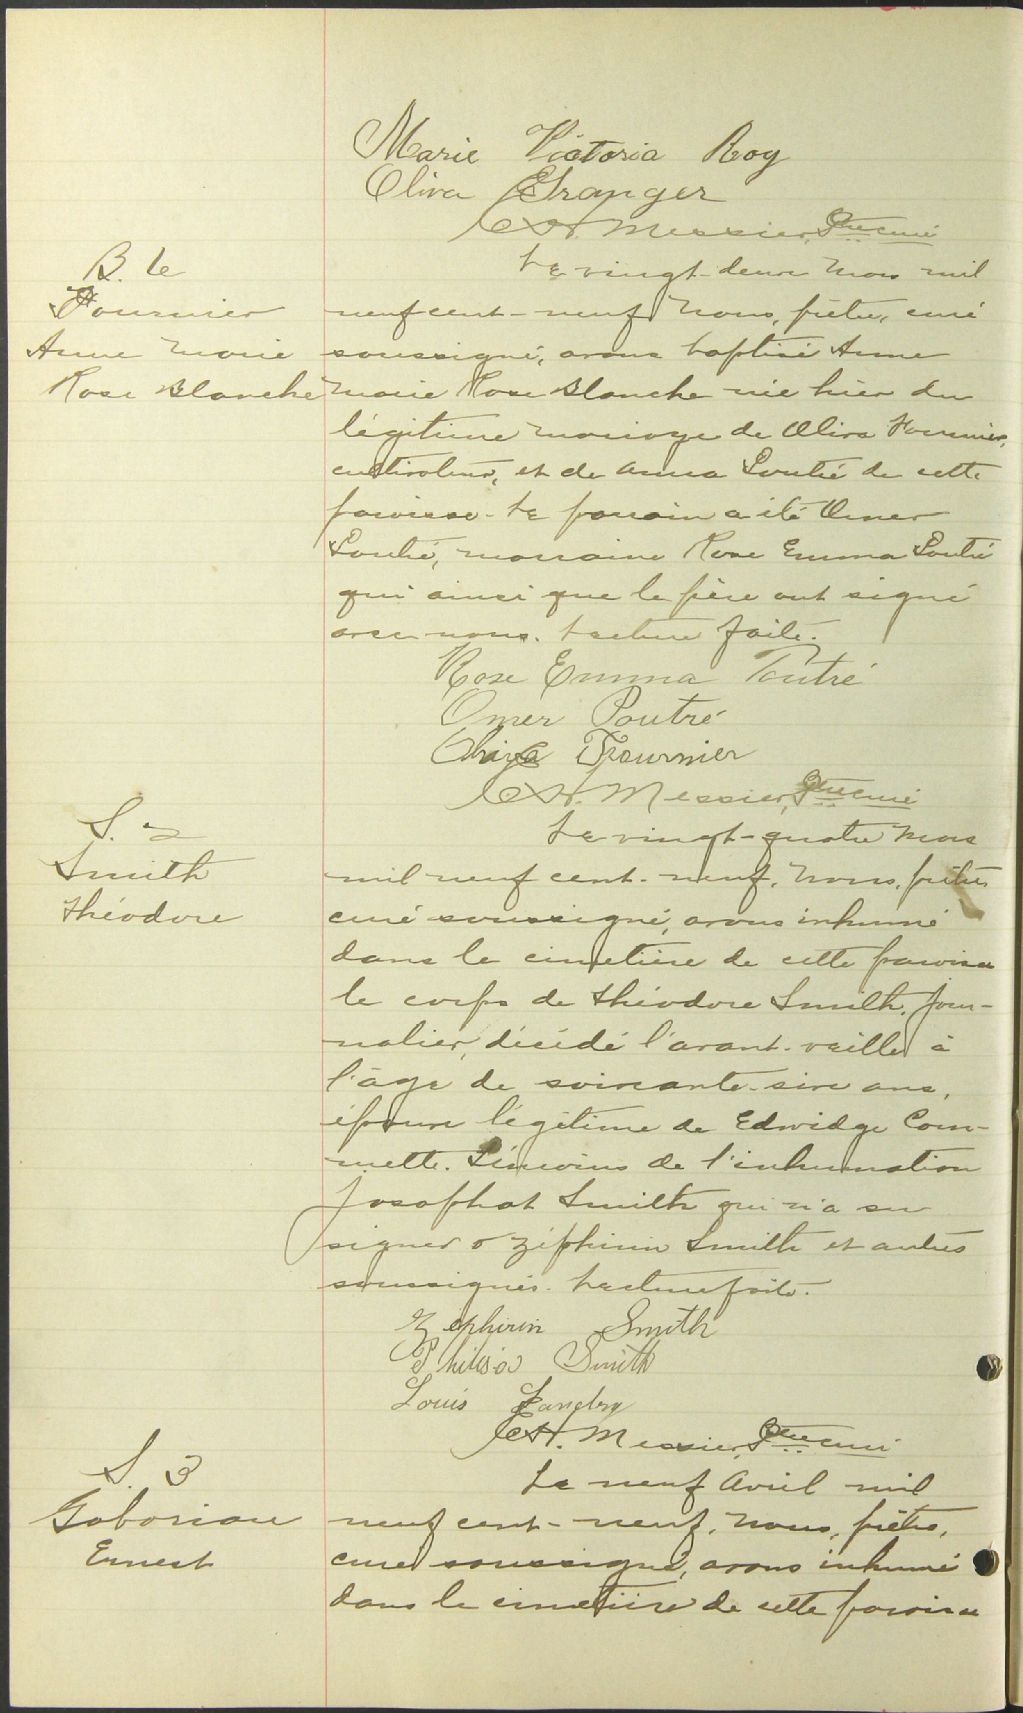 Marie Victoria Roy
Oliva Granger
A. Messier, Ptre curé
B. 6
Fournier
Anne Marie
Rose Blanche
Le vingt-deux Mars mil
neuf cent-neuf Nous, prêtre, curé
soussigné, avons baptisé Anne
Marie Rose Blanche née hier du
légitime mariage de Oliva Fournier,
cultivateur, et de Anna Poutré de cette
paroisse. Le parrain a été Omer
Poutré, marraine Rose Emma Poutré
qui ainsi que le père ont signé
avec nous. Lecture faite.
Rose Emma Poutré
Omer Poutré
Oliva Fournier
A. Messier, Ptre curé
S. 2
Smith
Théodore
Le vingt-quatre Mars
mil neuf cent-neuf, Nous, prêtre
curé soussigné, avons inhumé
dans le cimetière de cette paroisse
le corps de Théodore Smith, jour-
nalier, décédé l'avant-veille à
l'âge de soixante-six ans,
époux légitime de Edwidge Com-
mette. Témoins de l'inhumation
Josaphat Smith qui n'a su
signer & Zéphirin Smith et autres
soussignés. Lecture faite.
Zéphirin Smith
Smith
Louis Landry
A. Messier, Ptre curé
S. 3
Gaboriau
Ernest
Le neuf Avril mil
neuf cent-neuf, Nous, prêtre,
curé soussigné, avons inhumé
dans le cimetière de cette paroisse